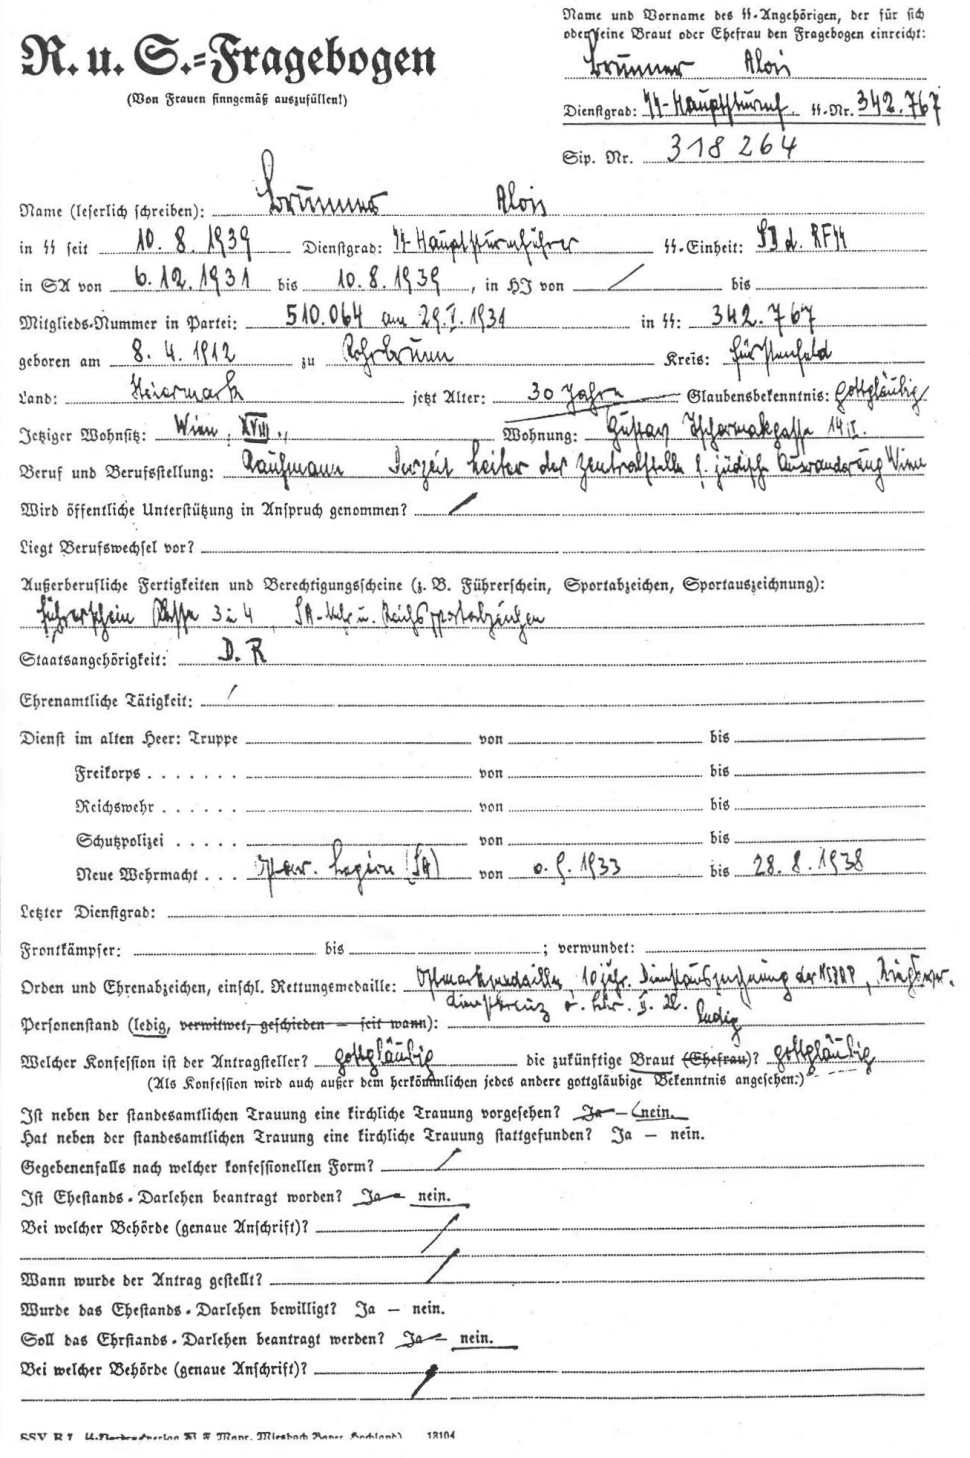 Name und Vorname des SS-Angehörigen, der für sich
oder seine Braut oder Ehefrau den Fragebogen einreicht:
R. u. S.=Fragebogen
(Von Frauen sinngemäß auszufüllen!)
Brunner Alois
Dienstgrad: SS-Hauptsturmf. SS-Nr. 342.767
Sip. Nr. 318 264
Name (leserlich schreiben): Brunner Alois
in SS seit 10. 8. 1939 Dienstgrad: SS-Hauptsturmführer SS-Einheit: SD d. RFSS
in SA von 6. 12. 1931 bis 10. 8. 1939, in HJ von / bis
Mitglieds-Nummer in Partei: 510.064 am 29. V. 1931 in SS: 342.767
geboren am 8. 4. 1912 zu Rohrbrunn Kreis: Fürstenfeld
Land: Steiermark jetzt Alter: 30 Jahre Glaubensbekenntnis: gottgläubig
Jetziger Wohnsitz: Wien, XVIII., Wohnung: Gustav Tschermakgasse 14
Beruf und Berufsstellung: Kaufmann Derzeit Leiter der Zentralstelle f. jüdische Auswanderung Wien
Wird öffentliche Unterstützung in Anspruch genommen? /
Liegt Berufswechsel vor?
Außerberufliche Fertigkeiten und Berechtigungsscheine (z. B. Führerschein, Sportabzeichen, Sportauszeichnung):
Führerschein Klasse 3 u 4 SA-Wehr u. Reichssportabzeichen
Staatsangehörigkeit: D. R
Ehrenamtliche Tätigkeit: /
Dienst im alten Heer: Truppe von bis
Freikorps . . . . . . . von bis
Reichswehr . . . . . . von bis
Schutzpolizei . . . . . von bis
Neue Wehrmacht . . . Öster. Legion (SA) von 1933 bis 28. 8. 1938
Letzter Dienstgrad:
Frontkämpfer: bis ; verwundet:
Orden und Ehrenabzeichen, einschl. Rettungsmedaille: Ostmarkmedaille, 10 jähr. Dienstauszeichnung der NSDAP,
Personenstand (ledig, verwitwet, geschieden — seit wann): ledig
Welcher Konfession ist der Antragsteller? gottgläubig die zukünftige Braut (Ehefrau)? gottgläubig
(Als Konfession wird auch außer dem herkömmlichen jedes andere gottgläubige Bekenntnis angesehen.)
Ist neben der standesamtlichen Trauung eine kirchliche Trauung vorgesehen? Ja — nein.
Hat neben der standesamtlichen Trauung eine kirchliche Trauung stattgefunden? Ja — nein.
Gegebenenfalls nach welcher konfessionellen Form? /
Ist Ehestands-Darlehen beantragt worden? Ja — nein.
Bei welcher Behörde (genaue Anschrift)? /
Wann wurde der Antrag gestellt? /
Wurde das Ehestands-Darlehen bewilligt? Ja — nein.
Soll das Ehrstands-Darlehen beantragt werden? Ja — nein.
Bei welcher Behörde (genaue Anschrift)? /